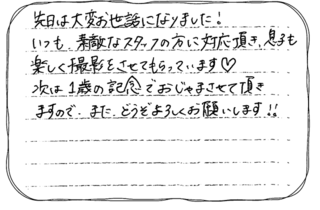 先日は大変お世話になりました!
いつも、素敵なスタッフの方に対応頂き、息子も
楽しく撮影をさせてもらっています♡
次は1歳の記念でおじゃまさせて頂き
ますので、また、どうぞよろしくお願いします!!